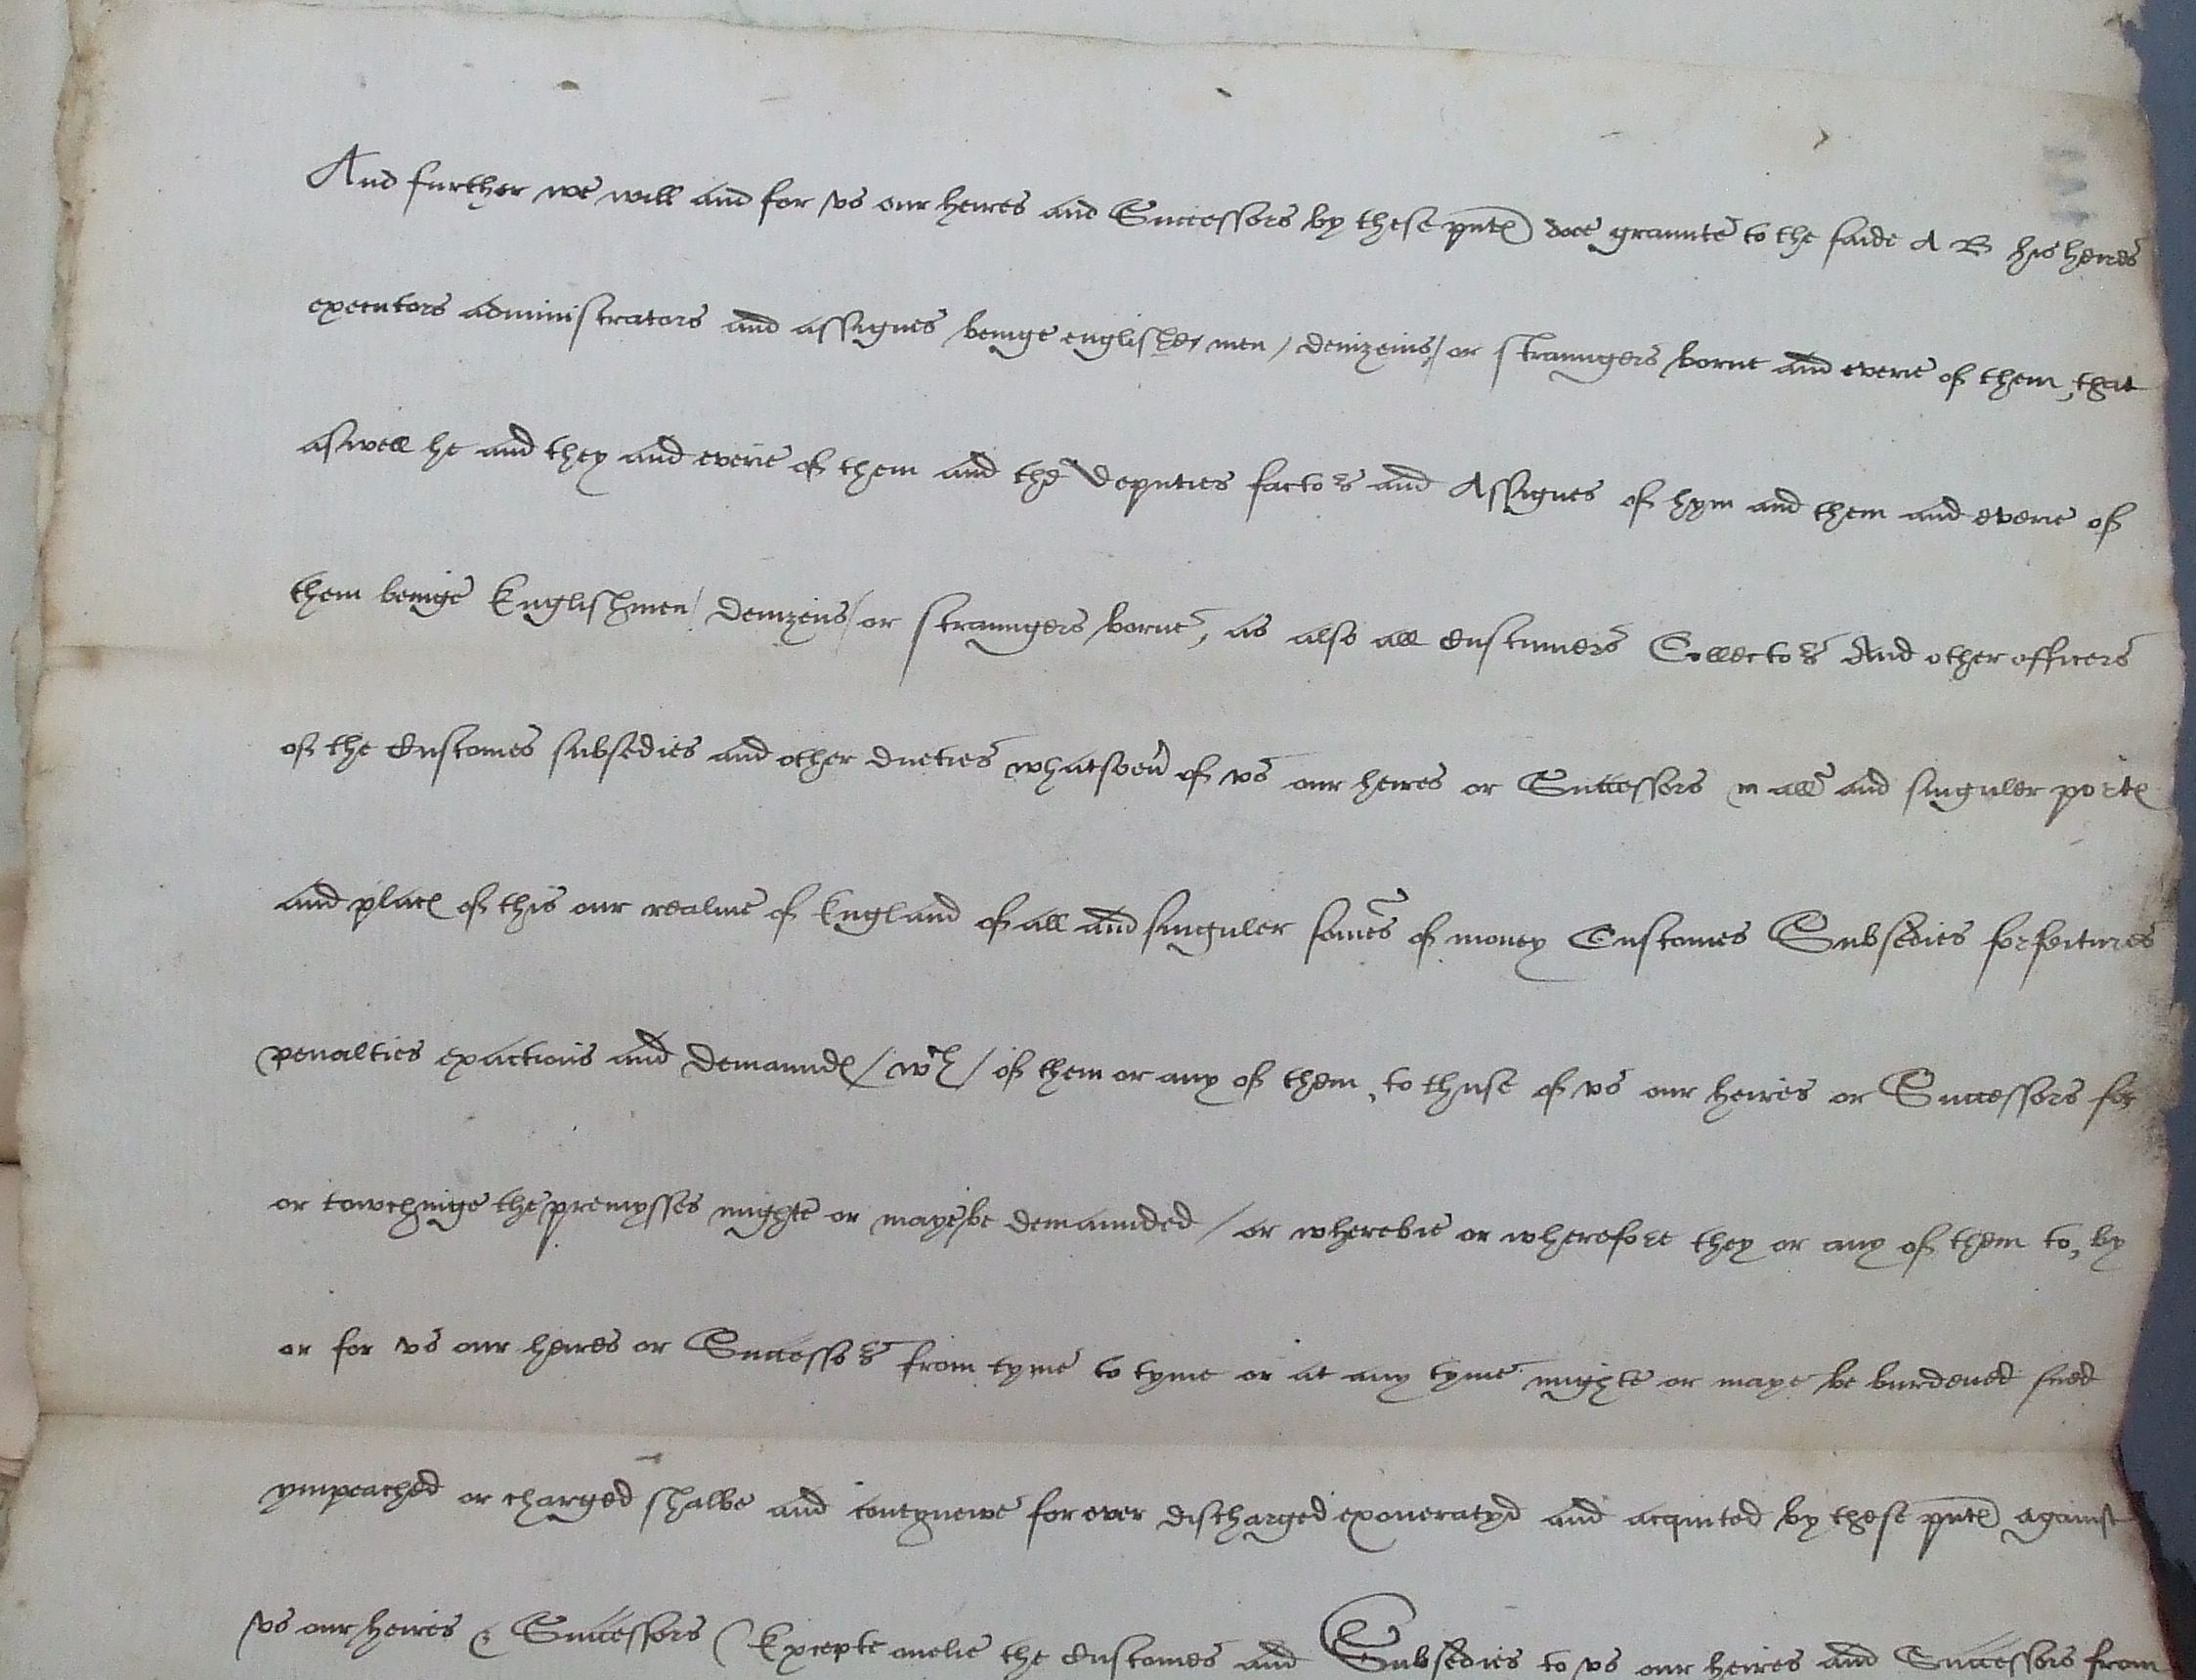 And further we will and for vs our heires and Successors by these pntes doe graunte to the saide A B his heires
executors administrators and assignes beinge englishe men / denizeins / or straungers borne and everie of them, that
aswell he and they and everie of them and the Deputies factors and Assignes of hym and them and everie of
them beinge Englishmen / Denizens / or straungers borne, as also all Custumers Collectors And other officers
of the Customes subsedies and other dueties whatsoeu' of vs our heires or Successors in all and singuler portes
and places of this our realme of England of all and singuler somes of money Customes Subsedies forfeitures
penalties exactions and Demaundes / wch / of them or any of them, to thuse of vs our heires or Successors for
or towchinge the premysses mighte or maye be demaunded / or wherebie or wherefore they or any of them to, by
or for vs our heires or Successors from tyme to tyme or at any tyme mighte or maye be burdened sued
ympeached or charged shalbe and contynewe for ever discharged exoneratyd and acquited by these pntes against
vs our heires & Successors ( Excepte onelie the Customes and Subsedies to vs our heires and Successors from